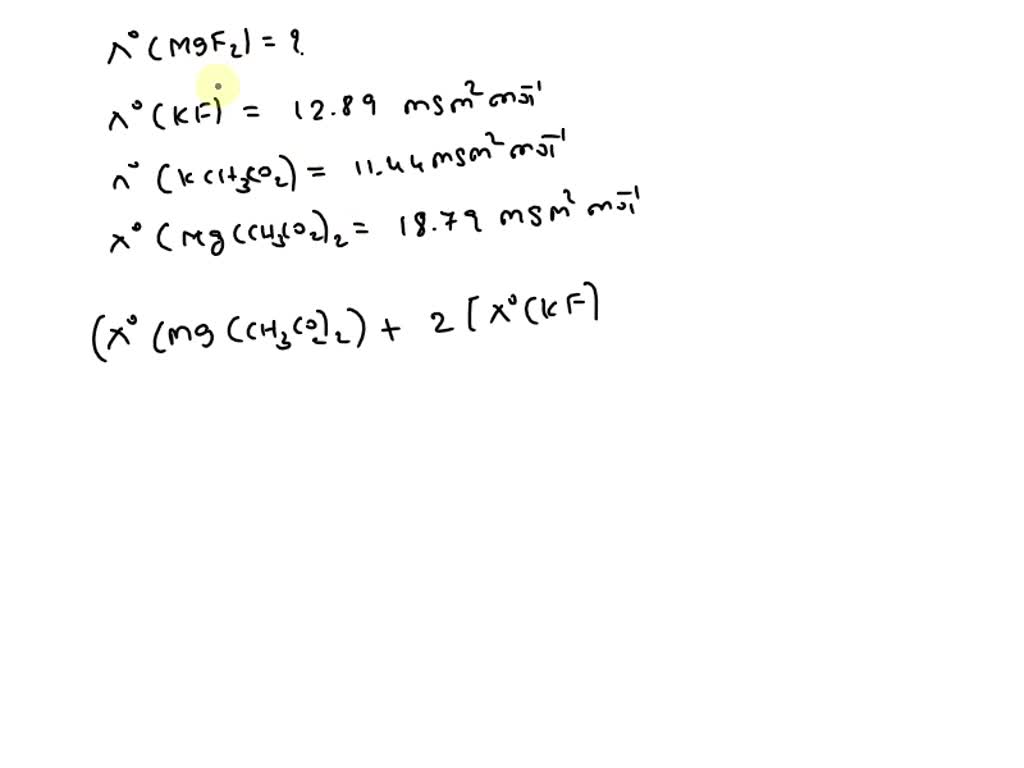 Λ°(MgF₂) = ?
Λ°(KF) = 12.89 mSm² mol⁻¹
Λ°(KCH₃CO₂) = 11.44 mSm² mol⁻¹
Λ°(Mg(CH₃CO₂)₂ = 18.79 mSm² mol⁻¹
(Λ°(Mg(CH₃CO₂)₂) + 2[Λ°(KF)